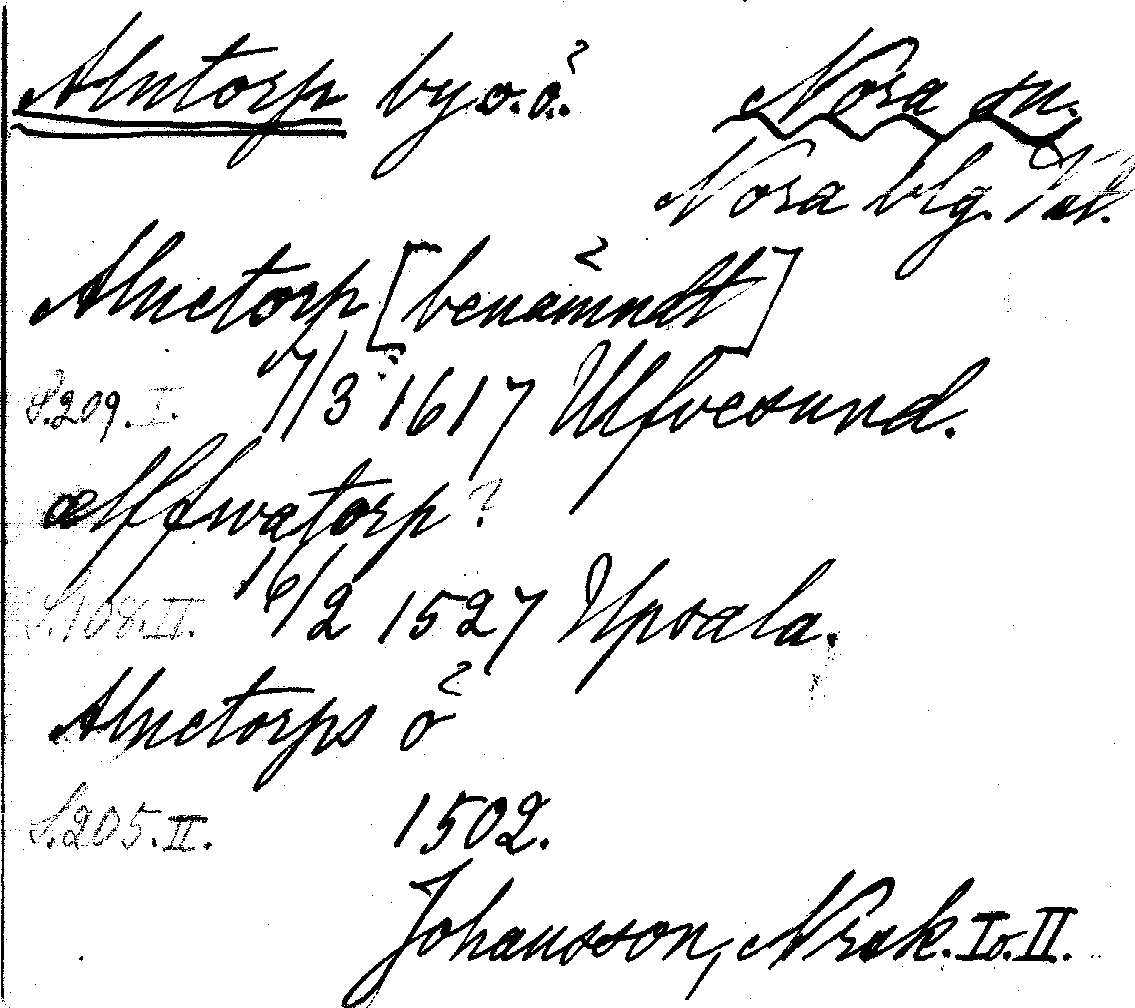 Alntorp by o. ö. Nora sn.
Nora blg.
Alnetorp [benämndt]
S. 209. I. 7/3 1617 Ulfvesund.
ælffwatorp?
S. 108. II. 16/2 1527 Upsala.
Alnetorps ö
S. 205. II. 1502.
Johansson, Nrsk. I o. II.